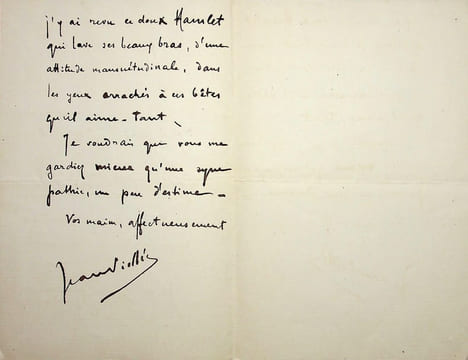 j'y ai revu ce doux Hamlet
qui lave ses beaux bras, d'une
attitude mansuétudinale, dans
les yeux arrachés à ces bêtes
qu'il aime-tant
Je voudrais que vous me
gardiez mieux qu'une sym
pathie, un peu d'estime -
Vos mains, affectueusement
Jean